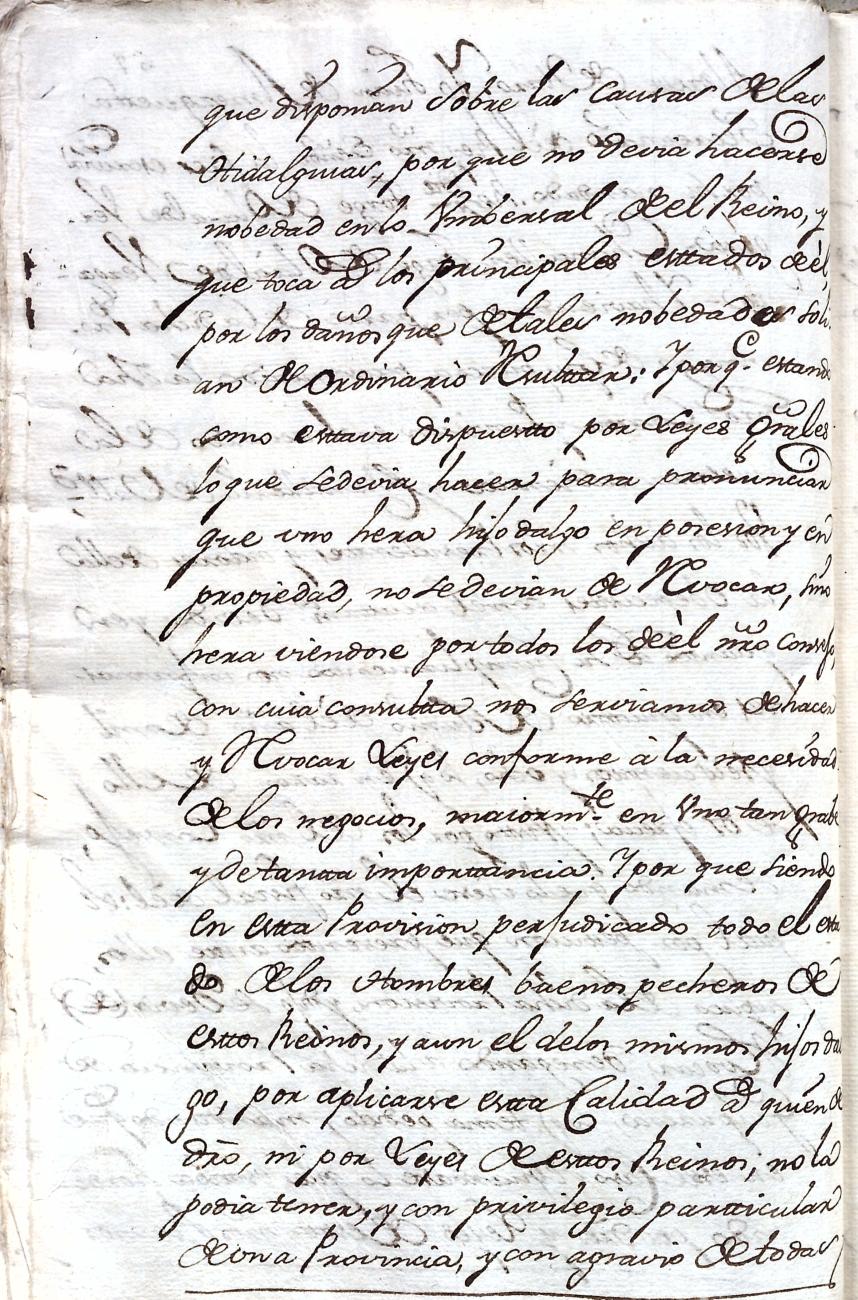 que disponian sobre las causas de las
Hidalguias, por que no devia hacerse
nobedad en lo Vnibersal del Reino, y
que toca â los principales esttados de èl,
por los daños que de tales nobedades soli
an de Ordinario Resultar: Y por q.e estando
como esttava dispuestto por Leyes Grâles
lo que se devia hacer para pronunciar
que vno hera hijo dalgo en posesion y en
propiedad, no se devian de Rvocar, sino
hera viendose por todos los de èl nr̃o consejo,
con cuia consultta nos serviamos de hacer
y Rvocar Leyes conforme à la necesidad
de los negocios, maiorm.te en Vno tan grabe
y de tanta importtancia. Y por que siendo
en estta Provision perjudicado todo el esta
do de los Hombres buenos pecheros de
esttos Reinos, y aun el de los mismos hijos dal
go, por aplicarse estta Calidad â quien de
dr̃o, ni por Leyes de esttos Reinos, no la
podia tener, y con privilegio particular
de vna Provincia, y con agravio de todas